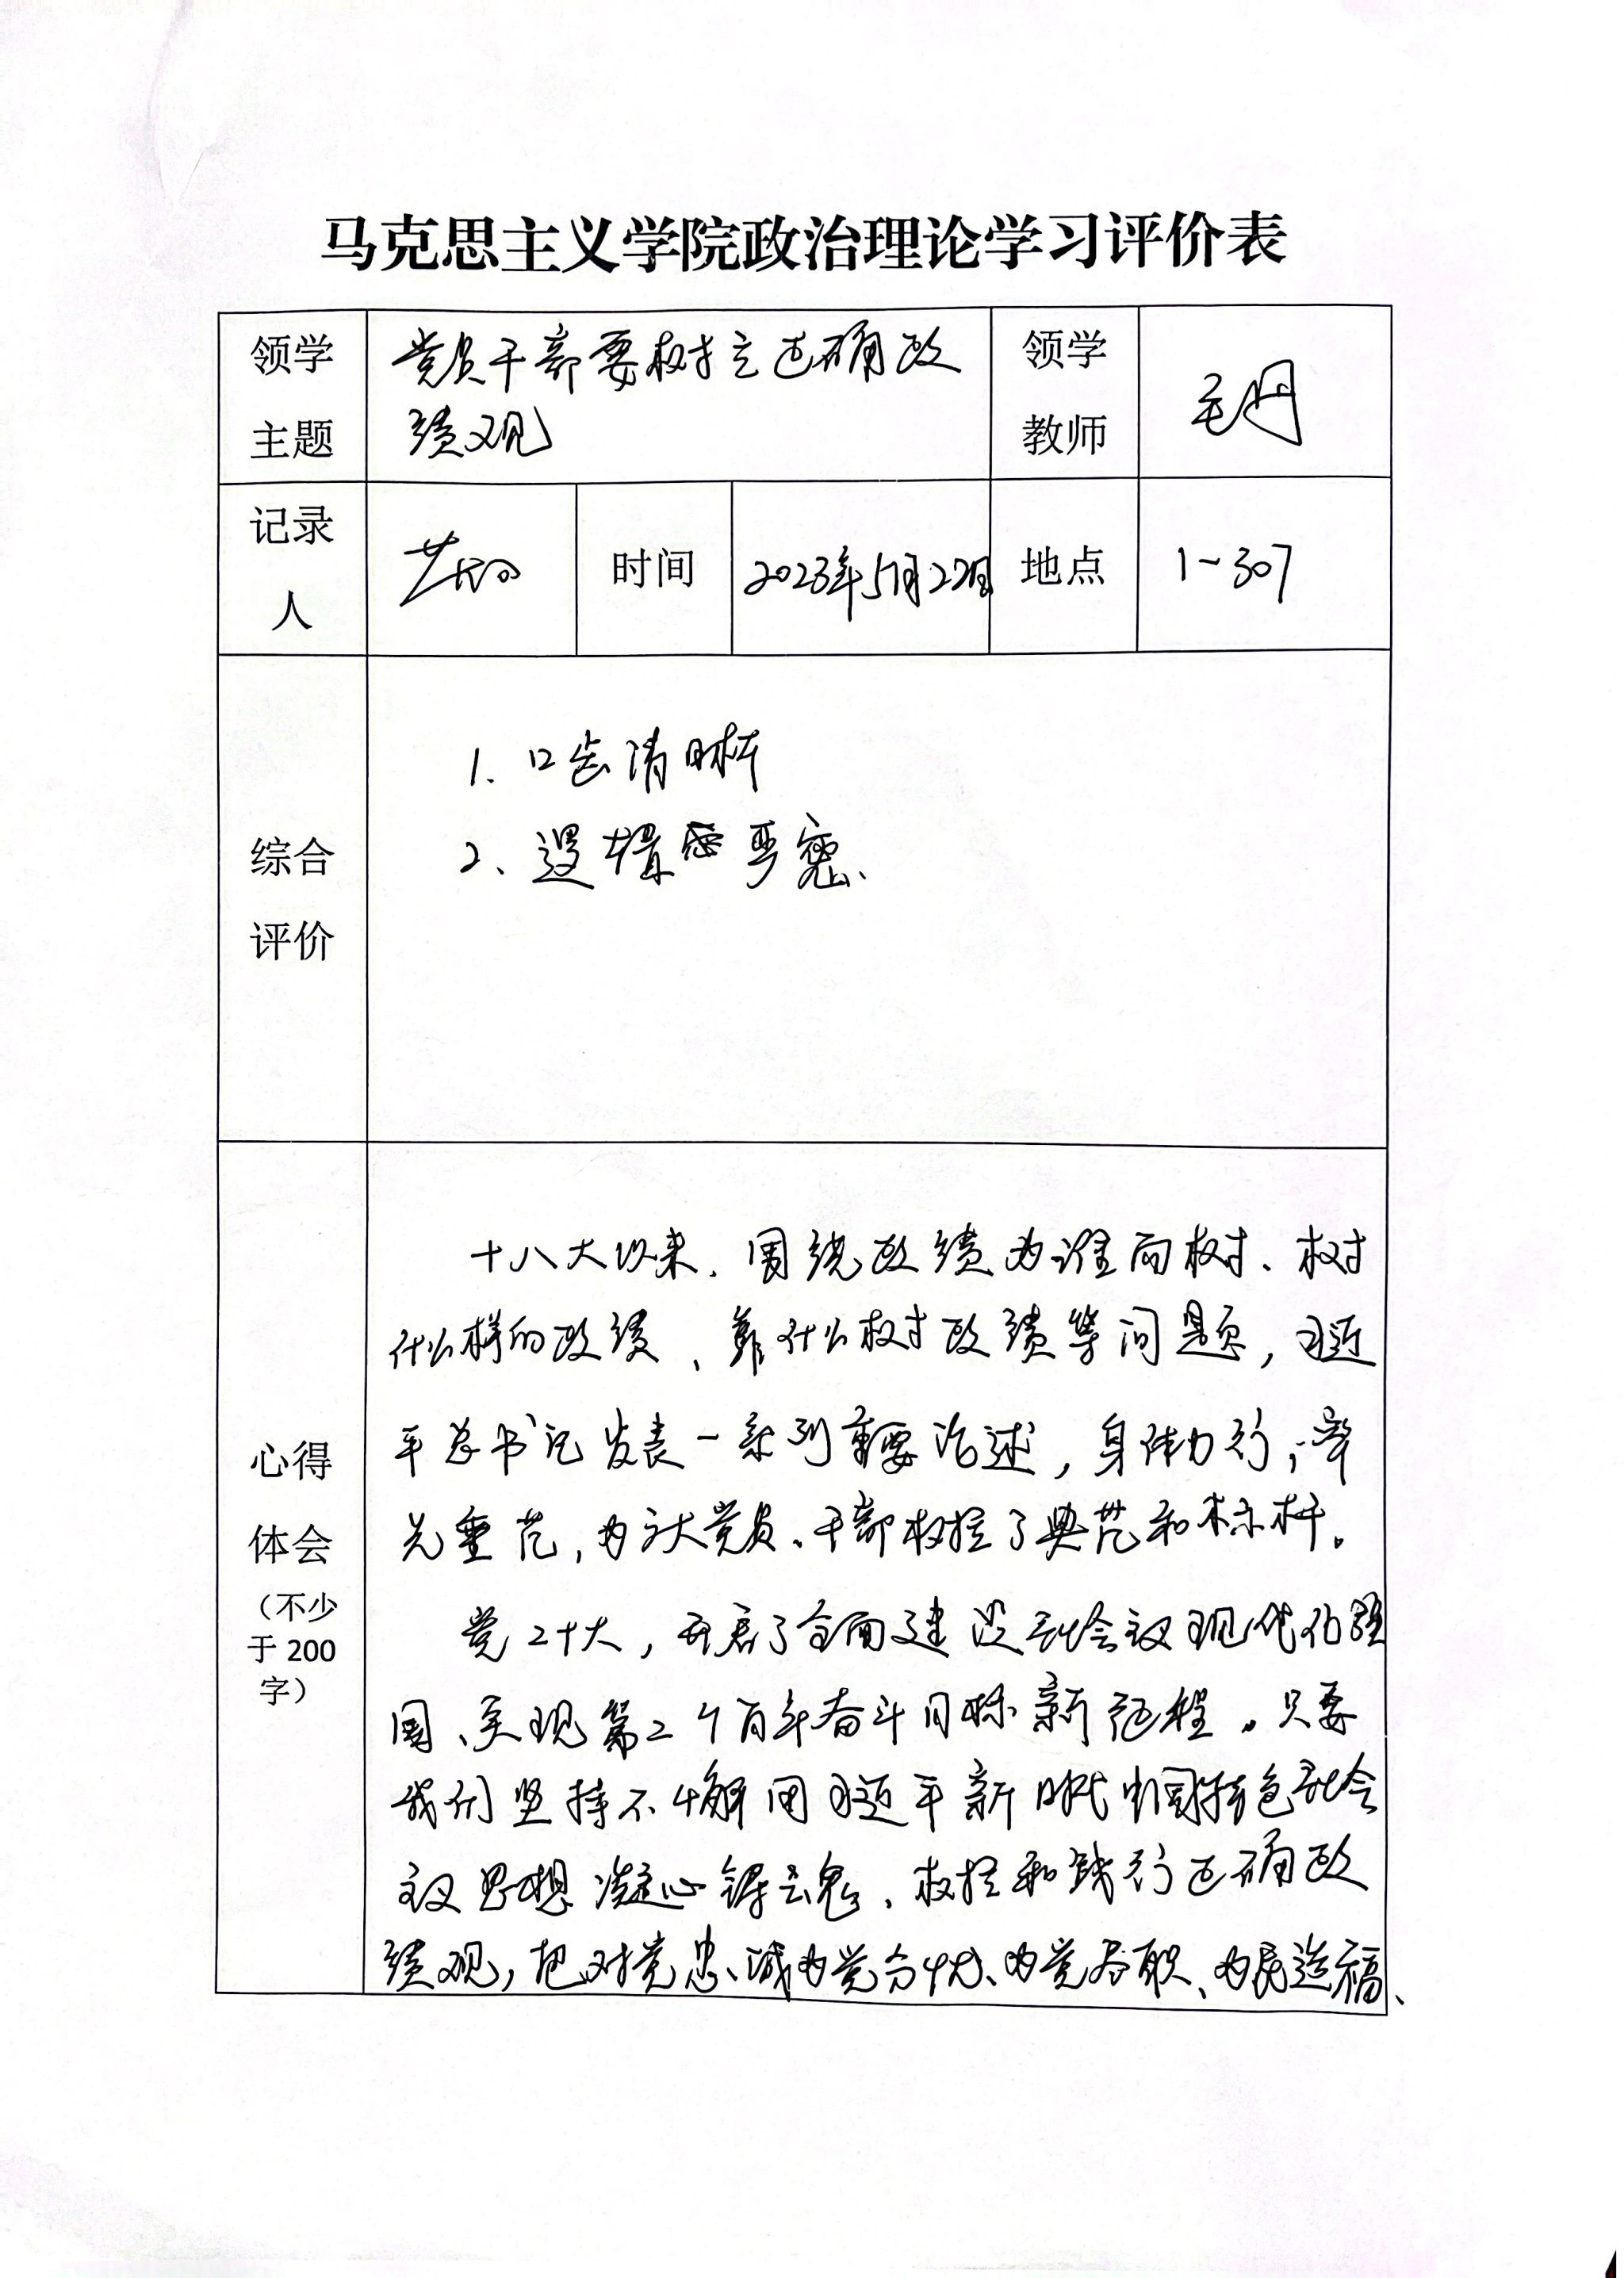 马克思主义学院政治理论学习评价表
领学主题
党员干部要树立正确政
绩观
领学教师
毛丹
记录人
时间
2023年5月22日
地点
1-307
综合评价
1、口齿清晰
2、逻辑严密、
心得体会（不少于200字）
十八大以来、围绕政绩为谁而树、树
什么样的政绩、靠什么树政绩等问题，习近
平总书记发表一系列重要论述，身体力行，率
先垂范，为广大党员、干部树立了典范和标杆。
党二十大，开启了全面建设社会主义现代化强
国、实现第二个百年奋斗目标新征程。只要
我们坚持不懈用习近平新时代中国特色社会
主义思想凝心铸魂、树立和践行正确政
绩观，把对党忠诚为党分忧、为党尽职、为民造福、